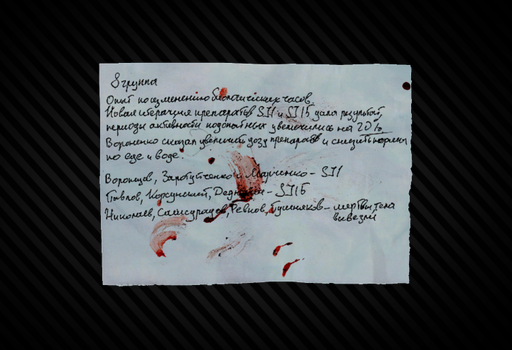 8 группа
Опыт по изменению биологических часов.
Новая итерация препаратов SJ1 и SJ15 дала результат,
периоды активности подопытных увеличились на 20%.
Вороненко сказал увеличить дозу препаратов и снизить нормы
по еде и воде.
Воронцов, Марченко - SJ1
Павлов, Корсунский, - SJ15
Николаев, Ревнов, - мертвы, тела
вывезли